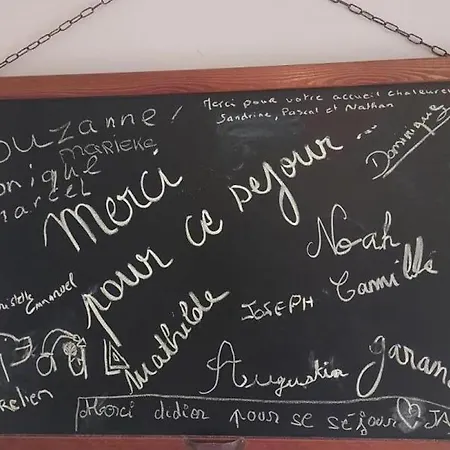 ouzanne!
Marieke
onique
marcel
Merci pour votre accueil chaleureu
Sandrine, Pascal et Nathan
Dominique
Merci
pour ce sejour...
Noah
Camille
Emmanuel
Mathilde
JOSEPH
Augustin
garan
relien
Merci didier pour se séjour JA